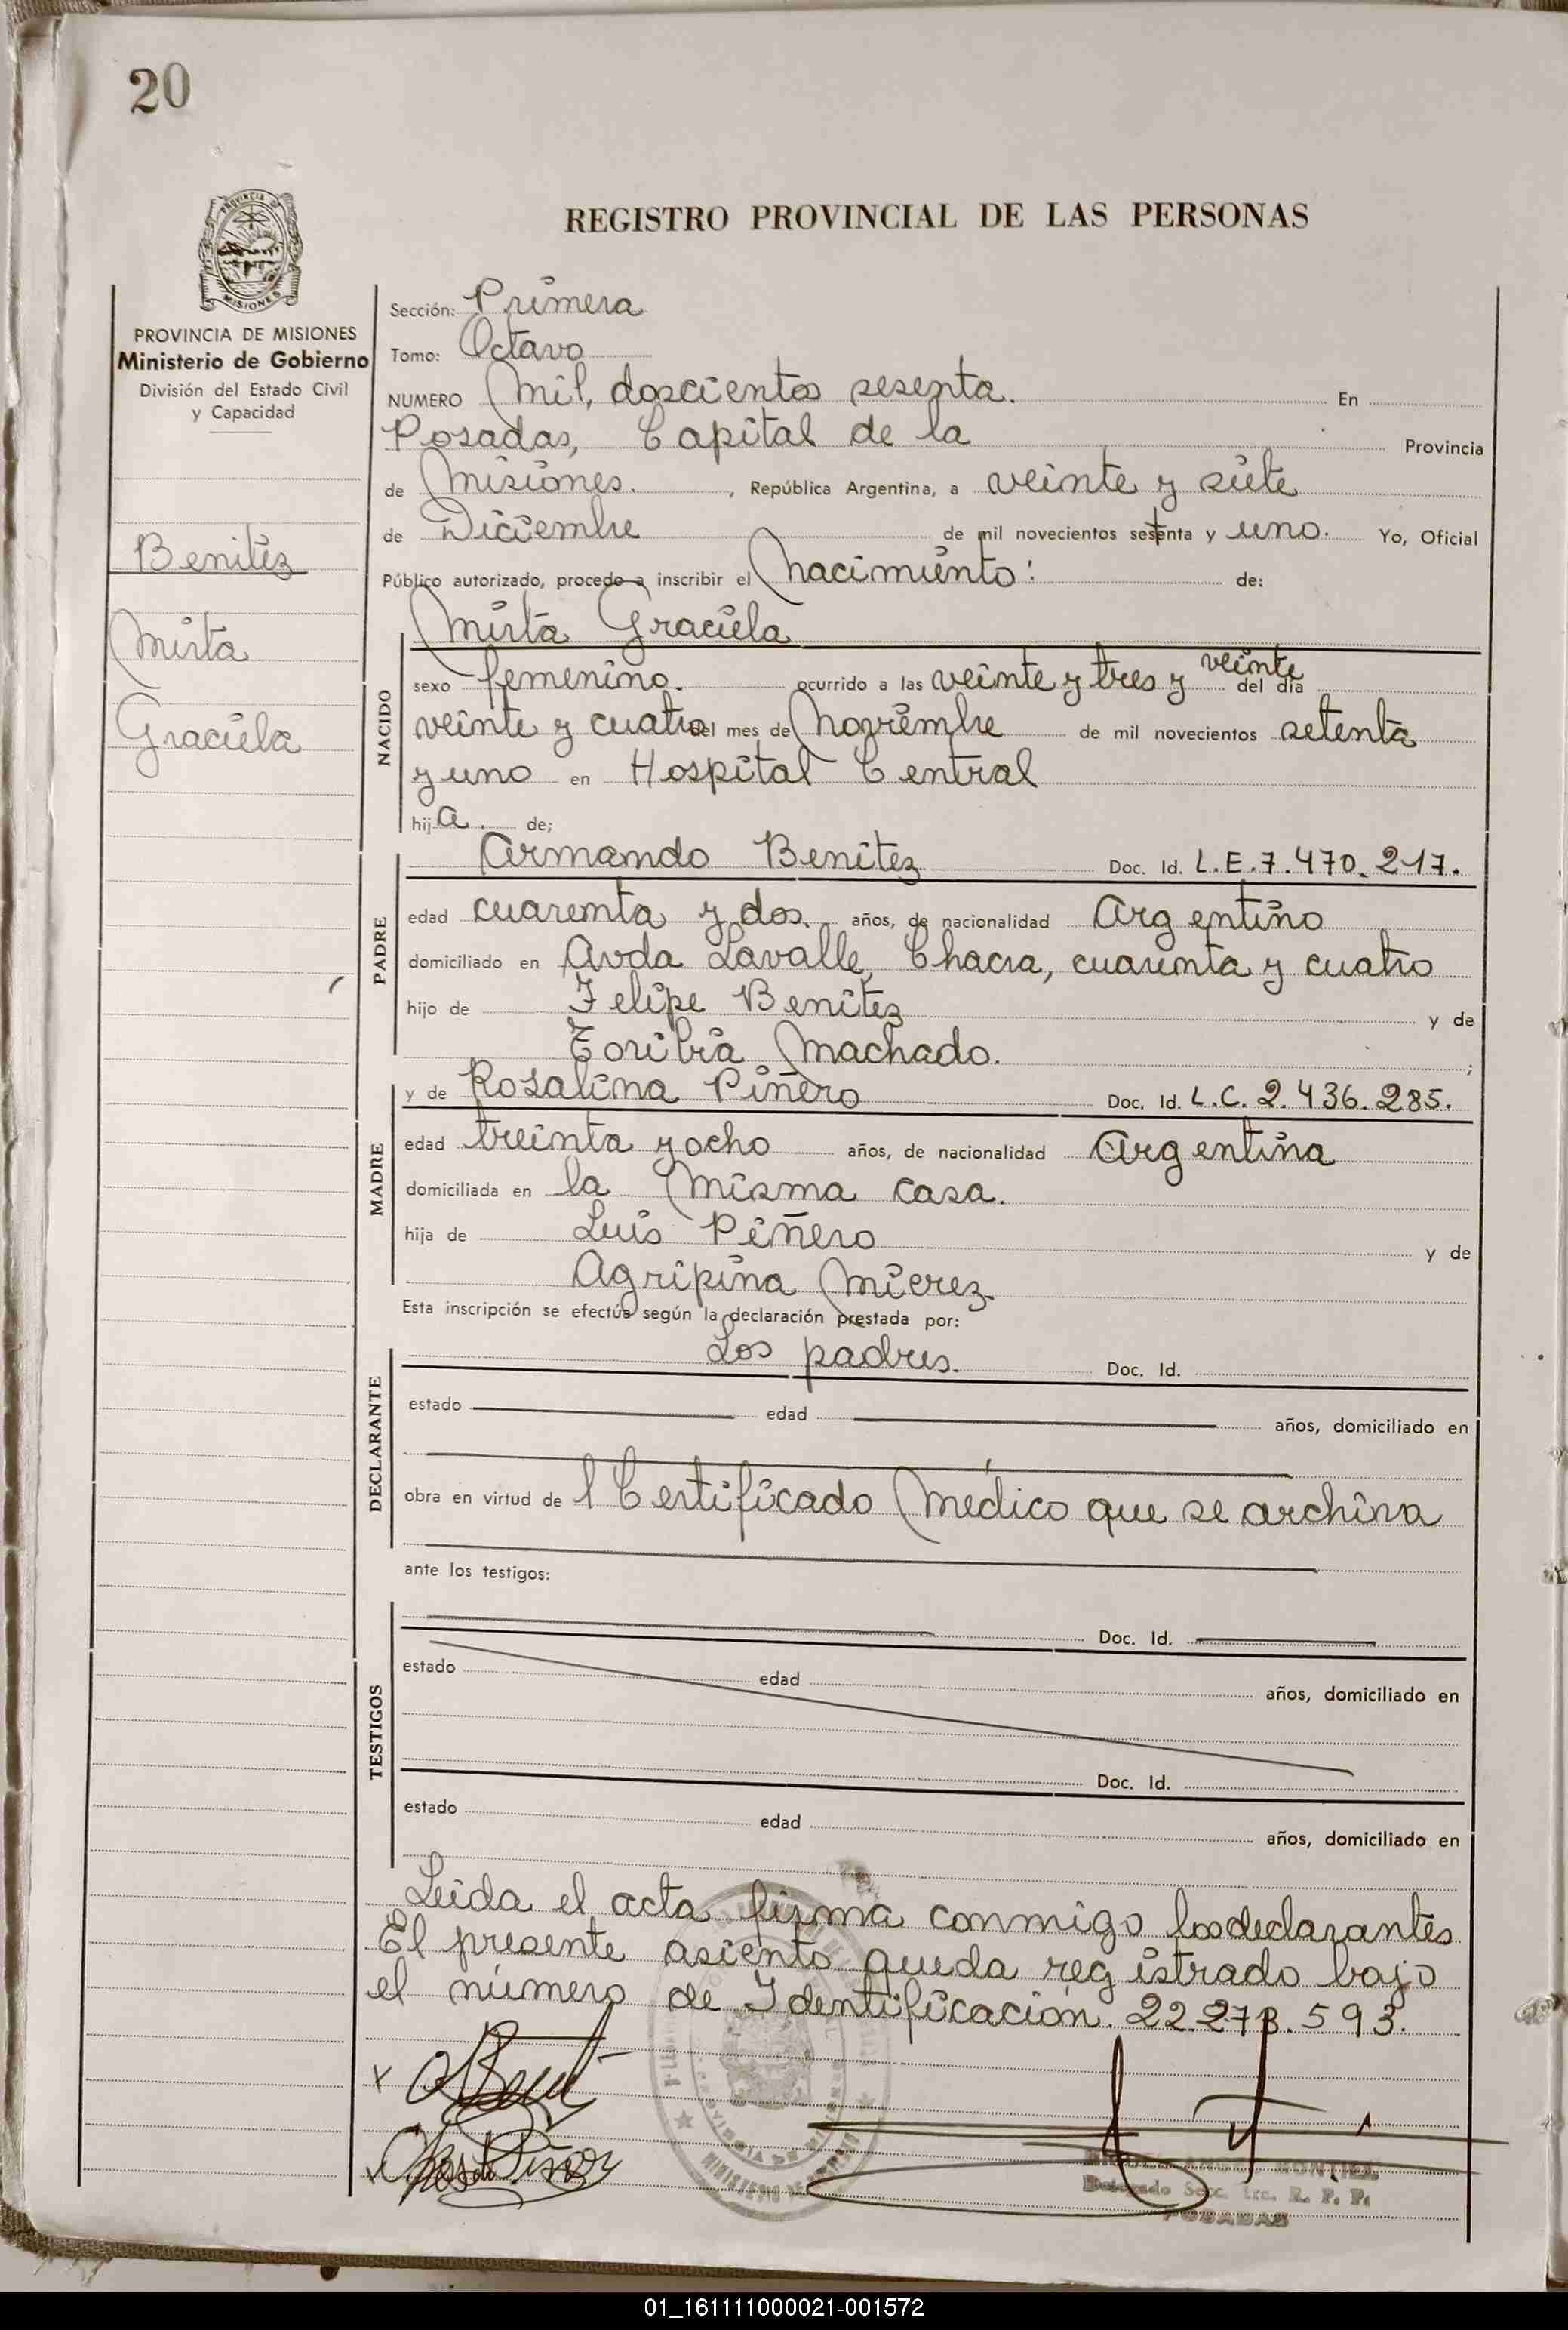 20
PROVINCIA DE
MISIONES
REGISTRO PROVINCIAL DE LAS PERSONAS
PROVINCIA DE MISIONES
Ministerio de Gobierno
División del Estado Civil
y Capacidad
Benitez
Mirta
Graciela
Sección: Primera
Tomo: Octavo
NUMERO Mil, doscientos sesenta. En
Posadas, Capital de la Provincia
de Misiones. , República Argentina, a veinte y siete
de Diciembre de mil novecientos setenta y uno. Yo, Oficial
Público autorizado, procedo a inscribir el Nacimiento: de:
Mirta Graciela
NACIDO
sexo femenino. ocurrido a las veinte y tres y veinte del día
veinte y cuatro del mes de Noviembre de mil novecientos setenta
y uno en Hospital Central
hij a. de;
PADRE
Armando Benitez Doc. Id. L.E. 7.470.217.
edad cuarenta y dos. años, de nacionalidad Argentino
domiciliado en Avda Lavalle, Chacra, cuarenta y cuatro
hijo de Felipe Benitez y de
Toribia Machado. ;
MADRE
y de Rosalina Piñero Doc. Id. L.C. 2.436.285.
edad treinta y ocho años, de nacionalidad Argentina
domiciliada en la Misma casa.
hija de Luis Piñero y de
Agripina Mierez.
Esta inscripción se efectúa según la declaración prestada por:
DECLARANTE
Los padres. Doc. Id.
estado edad años, domiciliado en
obra en virtud de l Certificado Médico que se archiva
ante los testigos:
TESTIGOS
Doc. Id.
estado edad años, domiciliado en
Doc. Id.
estado edad años, domiciliado en
Leida el acta firma conmigo los declarantes
El presente asiento queda registrado bajo
el número de Identificación. 22.273.593.
MONTIEL
Delegado Secc. 1ra. R. P. P.
POSADAS
01_161111000021-001572